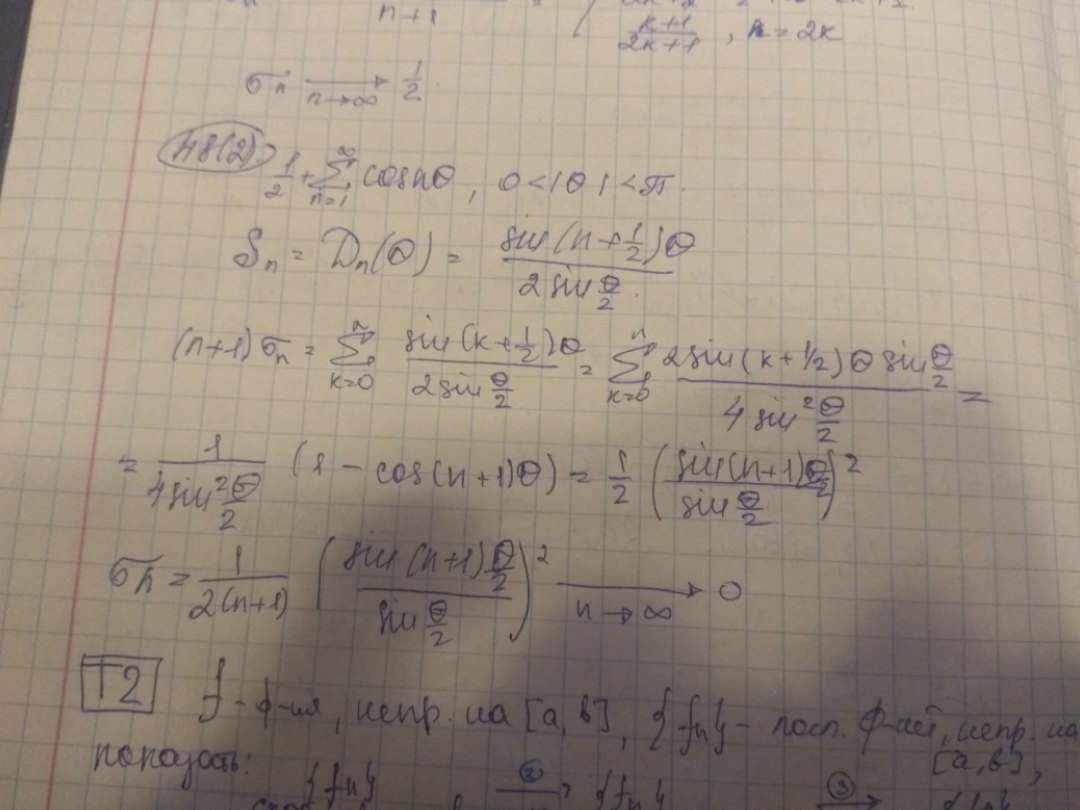 n+1
k+1/2k+1, n = 2k
σn →(n→∞) 1/2
48(2). 1/2 + ∑_{n=1}^{∞} cos nθ, 0 < |θ| < π.
Sn = Dn(θ) = sin(n+1/2)θ / 2 sin θ/2.
(n+1)σn = ∑_{k=0}^{n} sin(k+1/2)θ / 2 sin θ/2 = ∑_{k=0}^{n} 2 sin(k+1/2)θ sin θ/2 / 4 sin² θ/2 =
= 1 / 4 sin² θ/2 (1 − cos(n+1)θ) = 1/2 (sin(n+1)θ/2 / sin θ/2)²
σn = 1 / 2(n+1) (sin(n+1)θ/2 / sin θ/2)² →(n→∞) 0
T2 f - ф-ия, непр. на [a, b], {fn} - посл. ф-ий, непр. на [a, b],
показать:
{fn} ② {fn} ③